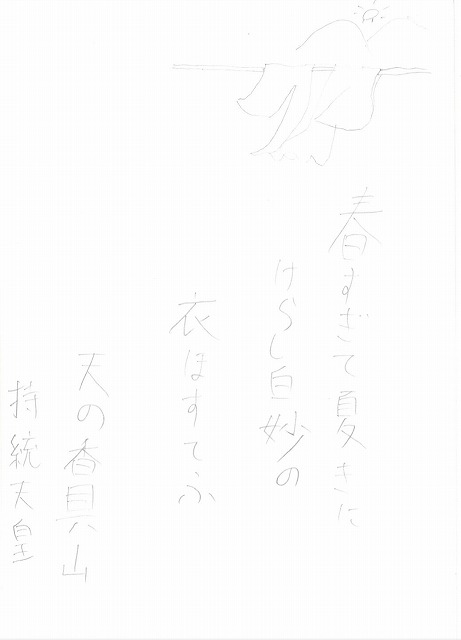 春すぎて夏きに
けらし白妙の
衣ほすてふ
天の香具山
持統天皇